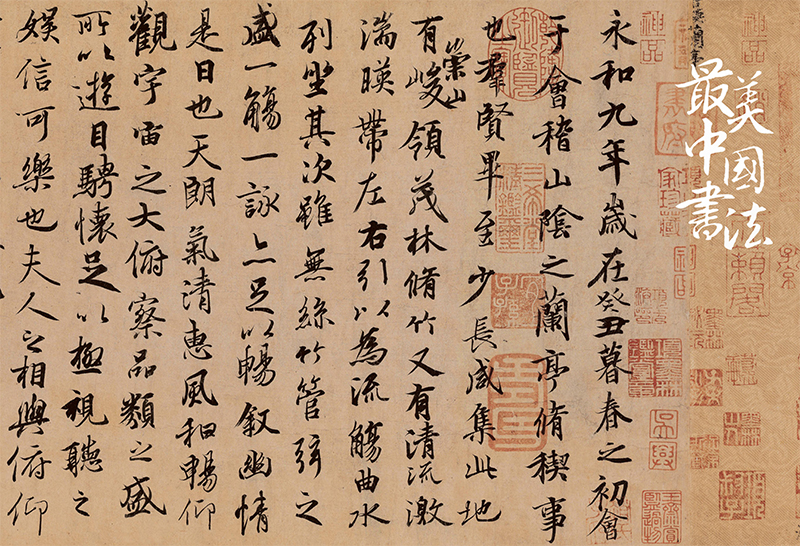 最美
中國
書法
永和九年歲在癸丑暮春之初會
于會稽山陰之蘭亭脩稧事
也羣賢畢至少長咸集此地
有崇山峻領茂林脩竹又有清流激
湍暎帶左右引以為流觴曲水
列坐其次雖無絲竹管弦之
盛一觴一詠亦足以暢敘幽情
是日也天朗氣清惠風和暢仰
觀宇宙之大俯察品類之盛
所以遊目騁懷足以極視聽之
娛信可樂也夫人之相與俯仰